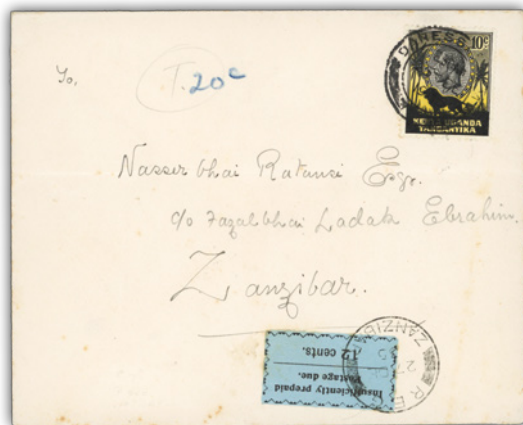 To,
T. 20c
10c
DARESS
KENYA UGANDA
TANGANYIKA
Nasser bhai Ratansi Esqr.
c/o Fazalbhai Ladak Ebrahim.
Zanzibar.
Insufficiently prepaid
Postage due.
12 cents.
ZANZIBAR
27